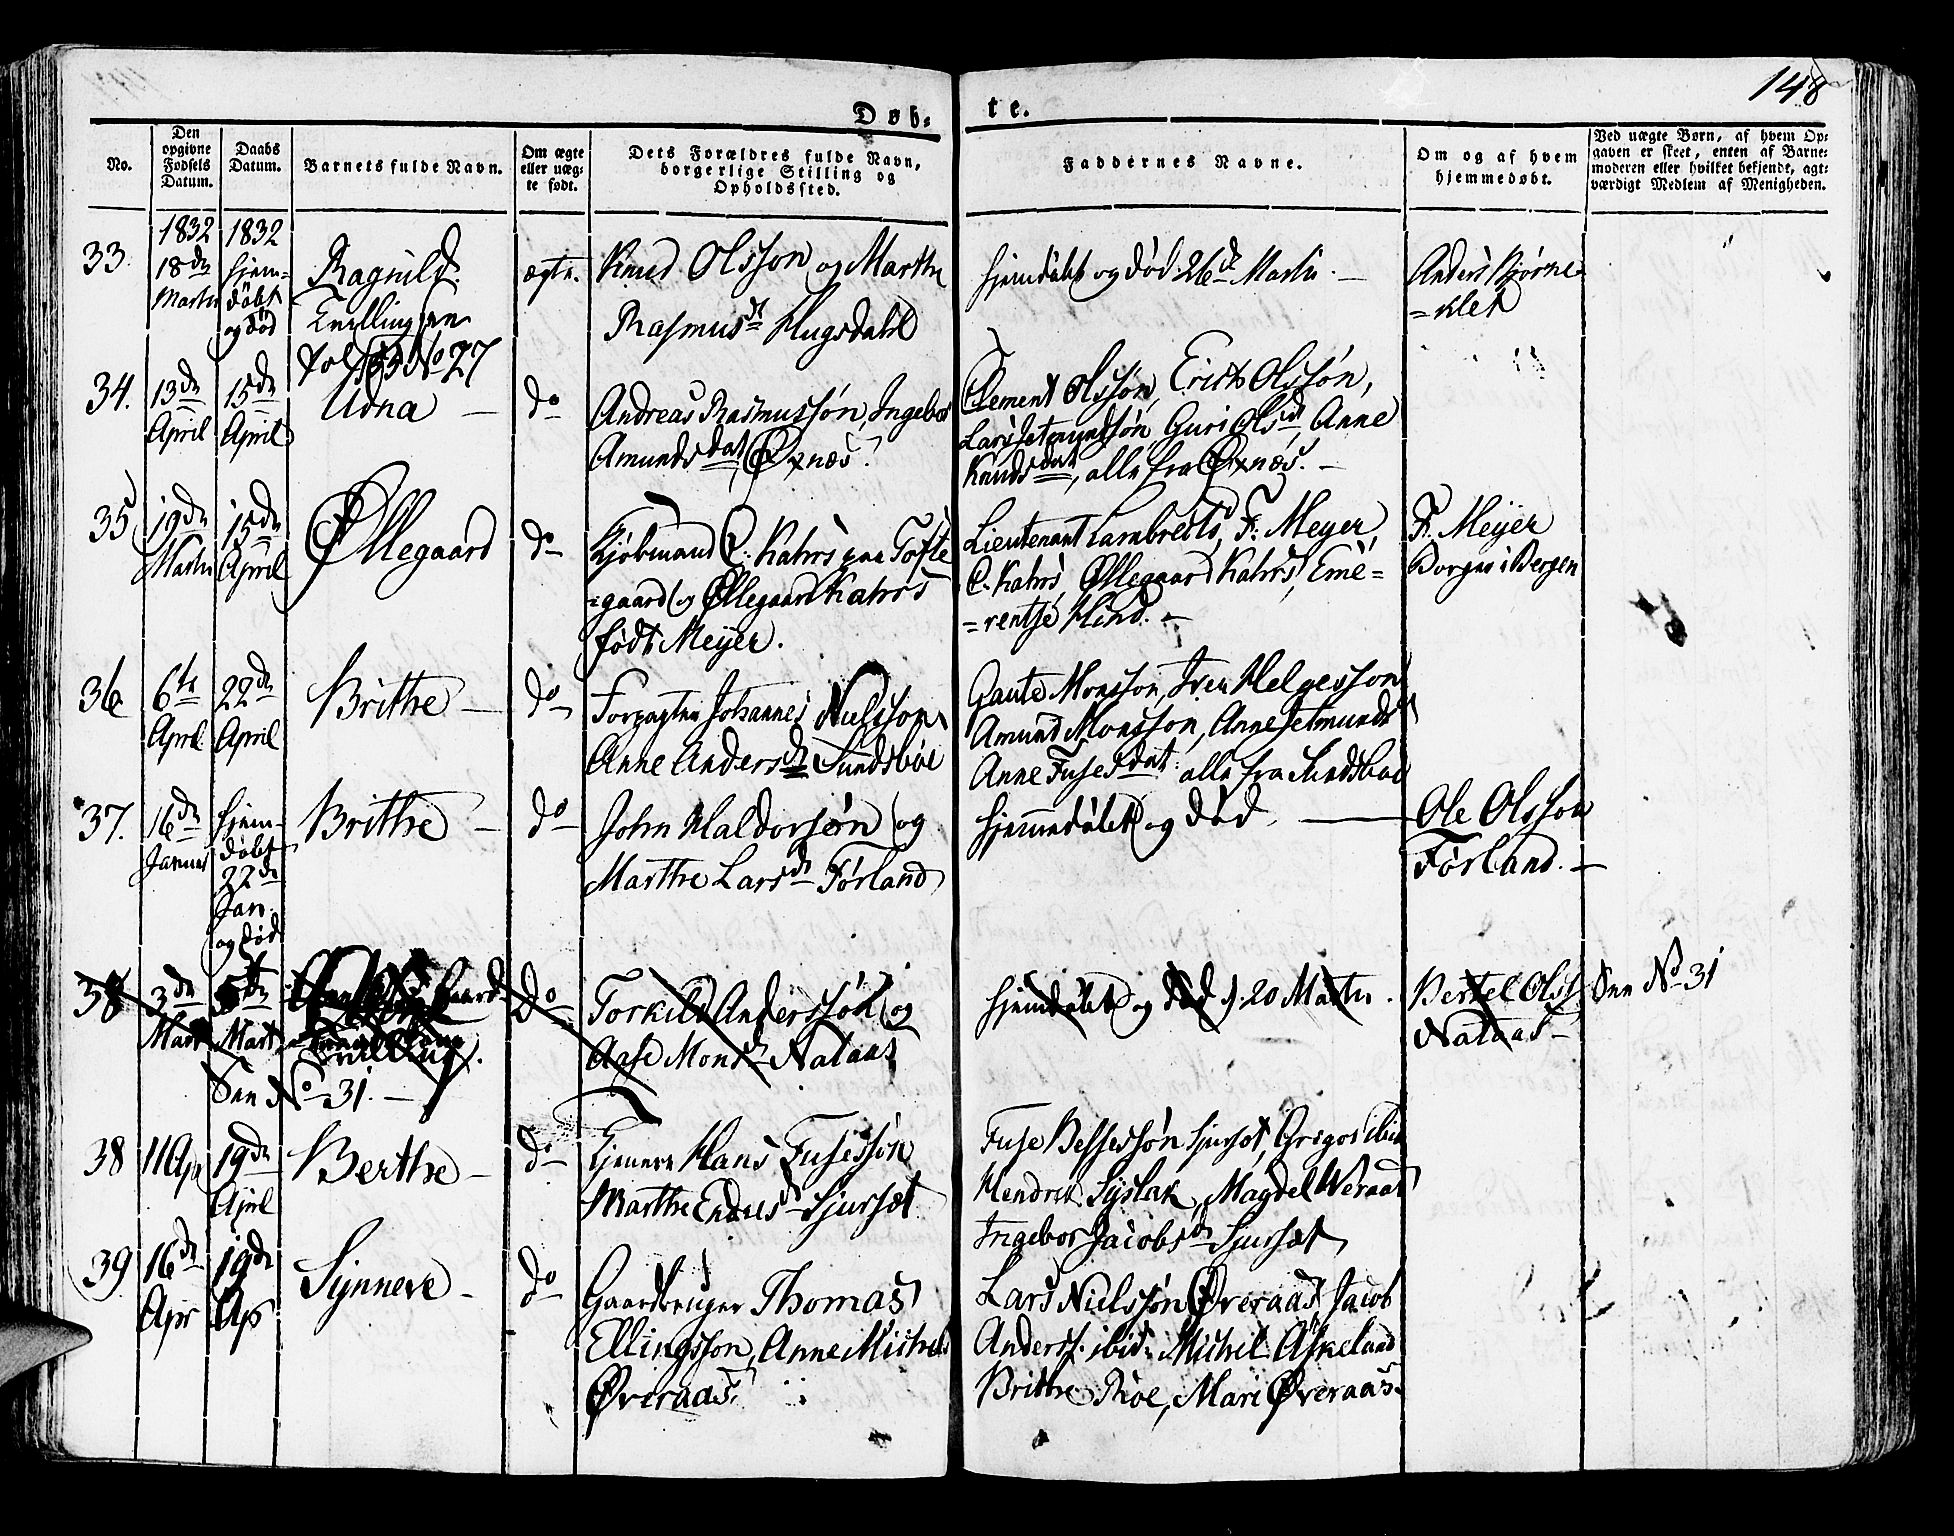 148
Døb-
te.
No.
Den opgivne Fødsels Datum.
Daabs Datum.
Barnets fulde Navn.
Om ægte eller uæg-te født.
Dets Forældres fulde Navn, borgerlige Stilling og Opholdssted.
Faddernes Navne.
Om og af hvem hjemmedøbt.
Ved uægte Børn, af hvem Op-
gaven er skeet, enten af Barne-
moderen eller hvilket bekjendt, agt-
værdigt Medlem af Menigheden.
33.
1832
18de
Martii
1832
hjem-
døbt
og død
Ragnild.
Tvilling
No 27
ægte.
Knud Olsson og Marthe
Rasmusdt Hugsdahl
hjemdøbt og død 26de Martii. —
Anders Bjørne
=klet
34.
13de
April
15de
April
Udna —
do
Andreas Rasmussøn, Ingebor
Amundsdat Øxnæs.
Clement Olssøn, Erick Olssøn,
Lars Jetmundsøn Guri Olsdt, Anne
Knudsdat, alle fra Øxnæs. —
35
19de
Martii
15de
April
Øllegaard
do
Kjøbmand C: Kahrs paa Tofte
=gaard og Øllegaard Kahrs
født Meyer.
Lieutenant Lambrects, F: Meyer,
C. Kahrs, Øllegaard Kahrs, Eme=
=rentse Hind. —
F. Meyer
Borger i Bergen
36
6te
April
22de
April
Brithe —
do
Forpagter Johannes Nielsson
Anne Andersdt Sundsbøe
Gaute Monsson, Iver Helgesson
Amund Monsson, Anne Jetmundsdt
Anne Fusesdat alle fra Sundsbøe
37.
16de
Januar
hjem-
døbt
22de
Jan.
og død
Brithe —
do
John Haldorsøn og
Marthe Larsdt Førland
hjemmedøbt og død. —
Ole Olsson
Førland. —
38
3de
Mart
5te
Mart
Tvilling.
do
Torkild Anderssøn og
Aase Monsdt Nataas
hjemdøbt og død d. 20 Martii.
Bertel Olss
Nataas —
See No 31
See No 31. —
38
11 Apr
19de
April
Berthe —
do
Tjenere Hans Fusessøn
Marthe Endresdt Sjursæt
Fuse Bessessøn Sjursæt, Gregor ibid
Hendrik Syslak, Magdel Weraas
Ingebor Jacobsdt Sjursæt
39
16de
Apr
19de
Ap
Synneve —
do
Gaardbruger Thomas
Ellingsson, Anne Michels
Øveraas.
Lars Nielssøn Øveraas, Jacob
Anderss. ibid. Michel Askeland
Brithe Røe, Mari Øveraas.